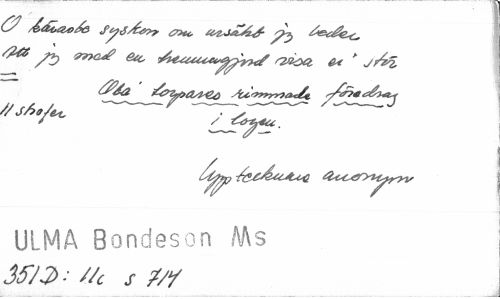 O käraste syskon om ursäkt jg beder
Att jg med en hemmagjord visa er stör
Obä Torpares rimmade föredrag
11 strofer
i logen.
Upptecknare anonym
ULMA Bondeson Ms
351D: 11c s 714